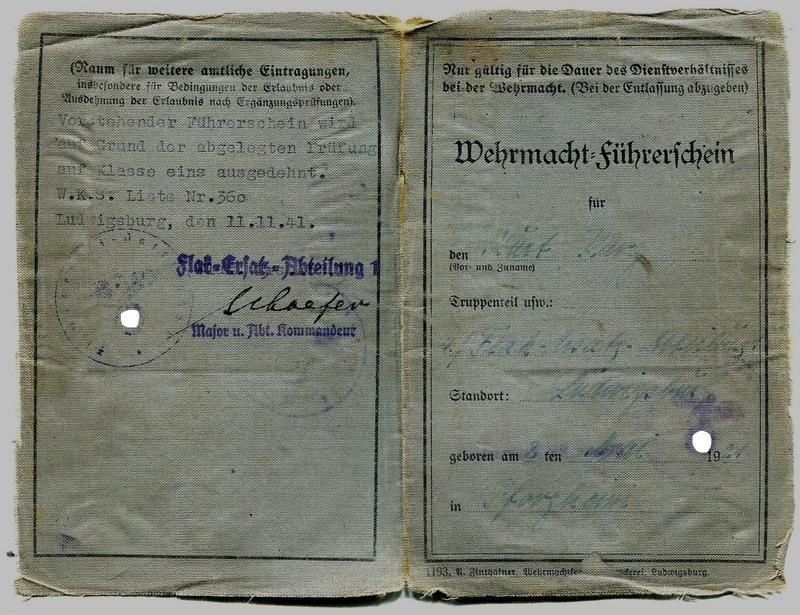 (Raum für weitere amtliche Eintragungen,
insbesondere für Bedingungen der Erlaubnis oder
Ausdehnung der Erlaubnis nach Ergänzungsprüfungen).
Vorstehender Führerschein wird
auf Grund der abgelegten Prüfung
auf Klasse eins ausgedehnt.
W.K.S. Liste Nr.360
Ludwigsburg, den 11.11.41.
Flak-Ersatz-Abteilung
Schaefer
Major u. Abt. Kommandeur
Nur gültig für die Dauer des Dienstverhältnisses
bei der Wehrmacht. (Bei der Entlassung abzugeben)
Wehrmacht-Führerschein
für
den Kurt
(Vor- und Zuname)
Truppenteil usw.:
Flak-Ersatz-Abteilung
Standort: Ludwigsburg
geboren am 2 ten Mai 1921
in Pforzheim
1193. Ludwigsburg.